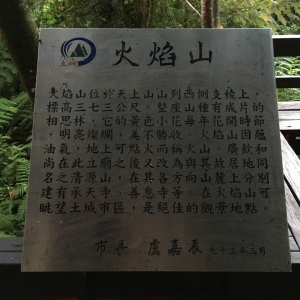 土城
火焰山
火焰山位於天上山山列西側支稜上，
標高三七三公尺，整座山種有成片的
相思林，它的黃色小花每年花開時節
，明亮燦爛，美不勝收。火焰山因蘊
油氣，地上可點火而稱火山，廣欽和
尚在此立廟之後又改為與其故居地同
名之清源山，在其各方向山麓上分別
建有承天寺、善息寺等。在火焰山可
眺望土城市區，是絕佳的觀景地點。
市長 盧嘉辰 九十三年三月